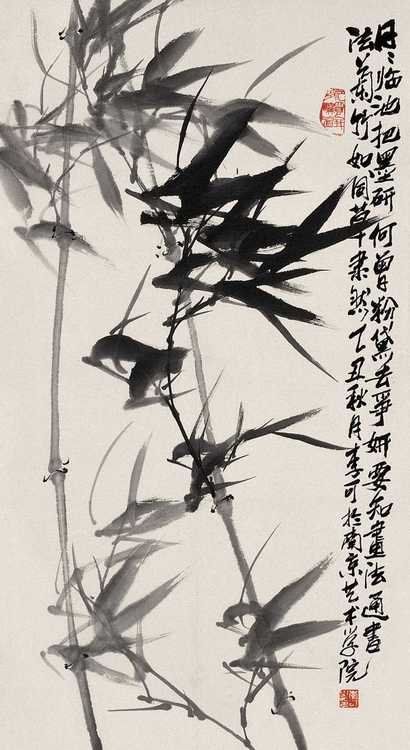 日日临池把墨研何曾粉黛去爭妍要知畫法通書
法蘭竹如同草隶然丁丑秋月李可於南京艺术学院